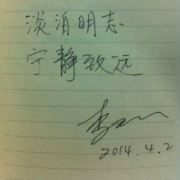 淡泊明志
宁静致远
2014.4.2